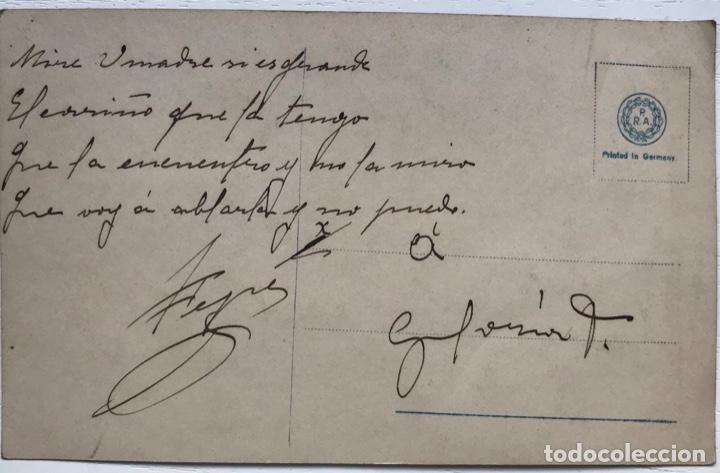 Mire V madre si es grande
El cariño que la tengo
que la encuentro y no la miro
que voy á ablarla y no puedo.
P
R.A.
Printed in Germany
x
á
Gloria T.
todocoleccion